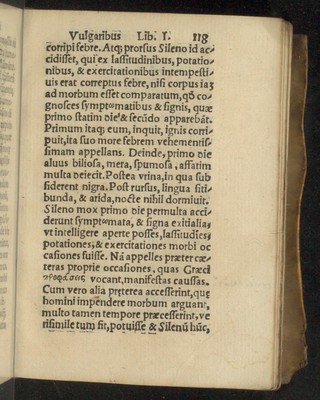 Vulgaribus Lib. I. 118
corripi febre. Atq; prorsus Sileno id ac
cidisset, qui ex lassitudinibus, potatio
nibus, & exercitationibus intempesti-
uis erat correptus febre, nisi corpus iaȝ
ad morbum esset comparatum, qđ co
gnosces symptomatibus & signis, quæ
primo statim die & secũdo apparebãt.
Primum itaq; eum, inquit, ignis corri-
puit, ita suo more febrem vehementis-
simam appellans. Deinde, primo die
aluus biliosa, mera, spumosa, affatim
multa deiecit. Postea vrina, in qua sub
siderent nigra. Post rursus, lingua siti-
bunda, & arida, nocte nihil dormiuit.
Sileno mox primo die permulta acci-
derunt symptomata, & signa exitialia;
vt intelligere aperte posses, lassitudies
potationes, & exercitationes morbi oc
casiones fuisse. Nã appelles præter cæ-
teras proprie occasiones, quas Græci
προφάσεις vocant, manifestas caussas.
Cum vero alia præterea accesserint, quę
homini impẽdere morbum arguant,
multo tamen tempore præcesserint, ve
risimile tum sit, potuisse & Silenũ hũc,